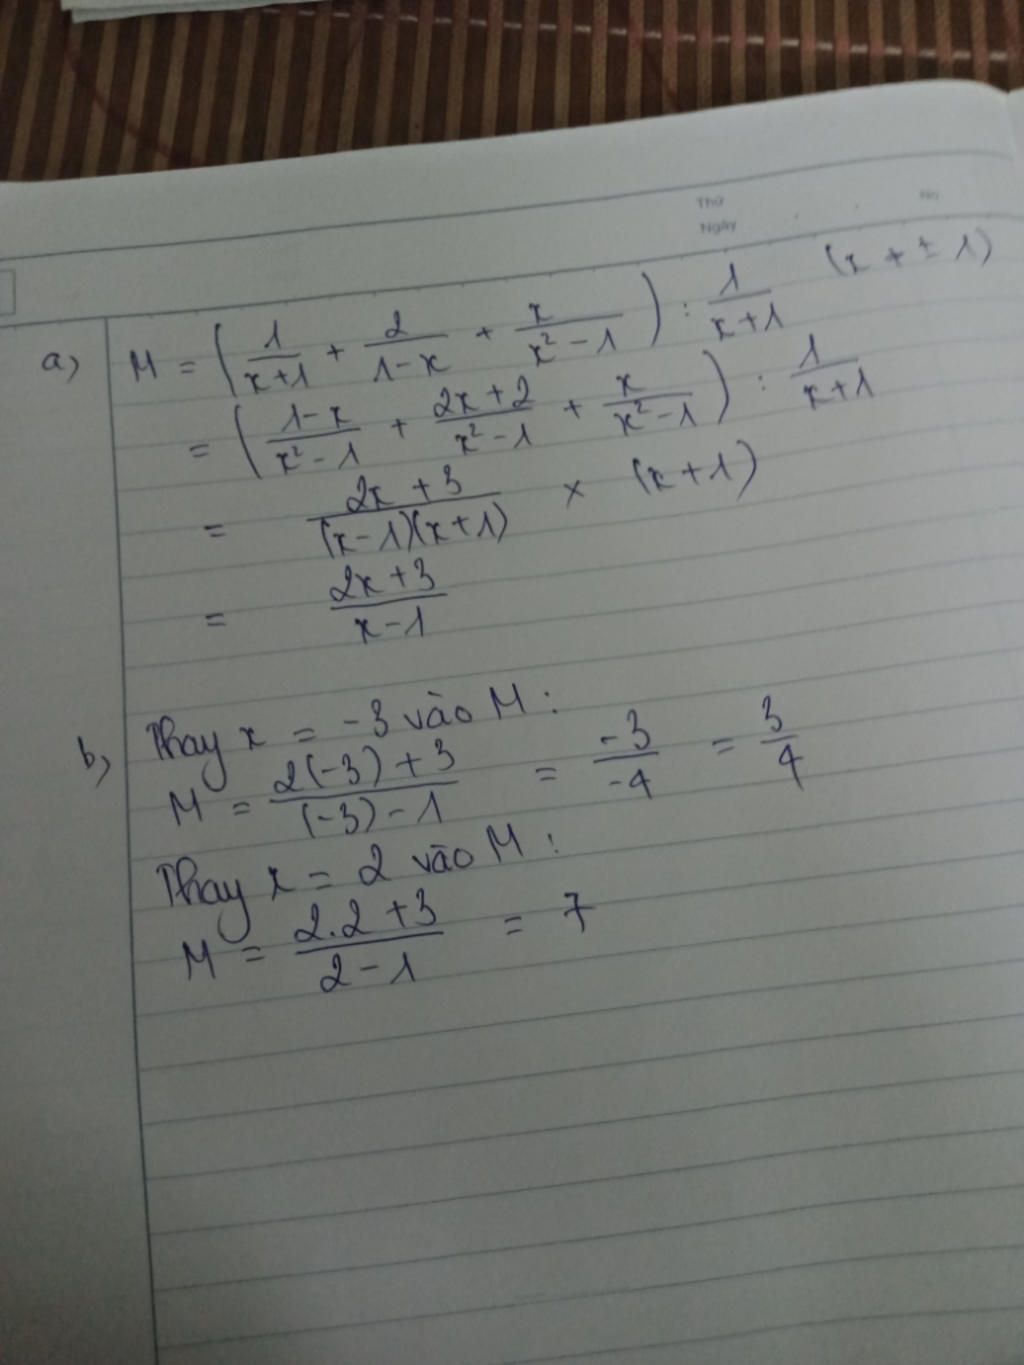 Thứ
No
Ngày
a) M = (1/(x+1) + 2/(1-x) + x/(x²-1)) : 1/(x+1) (x + ± 1)
= ((1-x)/(x²-1) + (2x+2)/(x²-1) + x/(x²-1)) : 1/(x+1)
= (2x+3)/((x-1)(x+1)) × (x+1)
= (2x+3)/(x-1)
b, Thay x = -3 vào M :
M = (2(-3)+3)/((-3)-1) = -3/-4 = 3/4
Thay x = 2 vào M :
M = (2.2+3)/(2-1) = 7